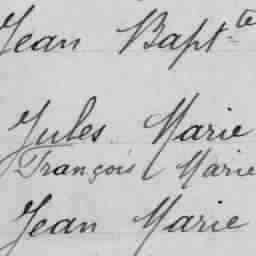 Jean Bapt.te
Jules Marie
François Marie
Jean Marie